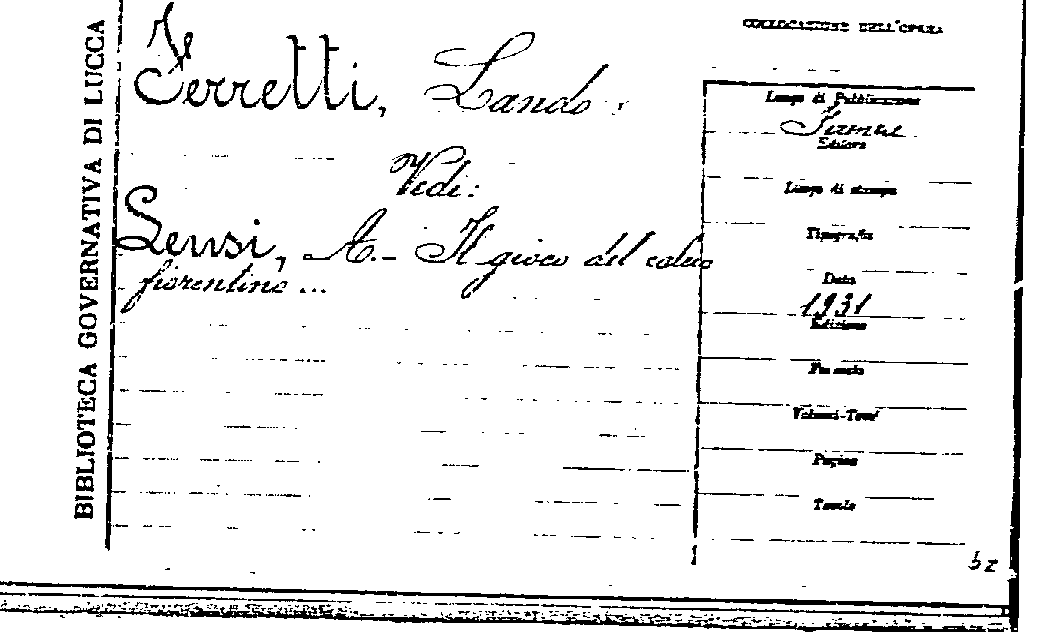 BIBLIOTECA GOVERNATIVA DI LUCCA
COLLOCAZIONE DELL'OPERA
Ferretti, Lando.
Vedi:
Sensi, A. - Il gioco del calcio
fiorentino ...
Luogo di Pubblicazione
Editore
Luogo di stampa
Tipografia
Data
1931
Edizione
Formato
Volumi-Tomi
Pagine
Tavole
bz